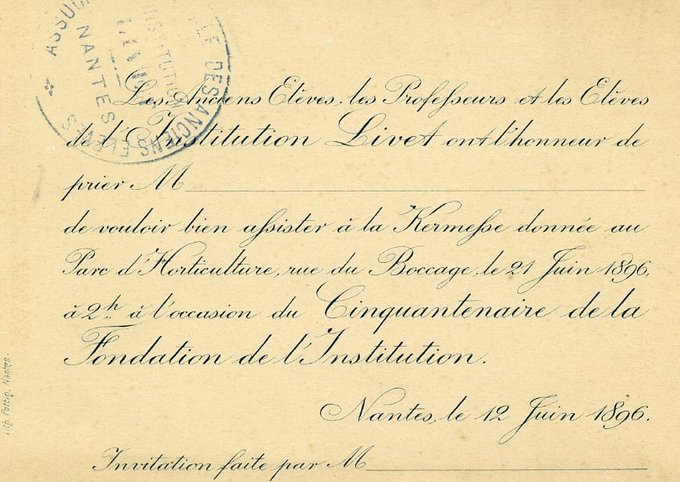 ASSOC
LE DES ANCIENS ELEVES
INSTITUTION
LIVET
NANTES
Les Anciens Elèves, les Professeurs et les Elèves
de l'Institution Livet ont l'honneur de
prier M
de vouloir bien assister à la Kermesse donnée au
Parc d'Horticulture, rue du Boccage, le 21 Juin 1896,
à 2h. à l'occasion du Cinquantenaire de la
Fondation de l'Institution.
Nantes, le 12 Juin 1896.
Invitation faite par M
Nantes